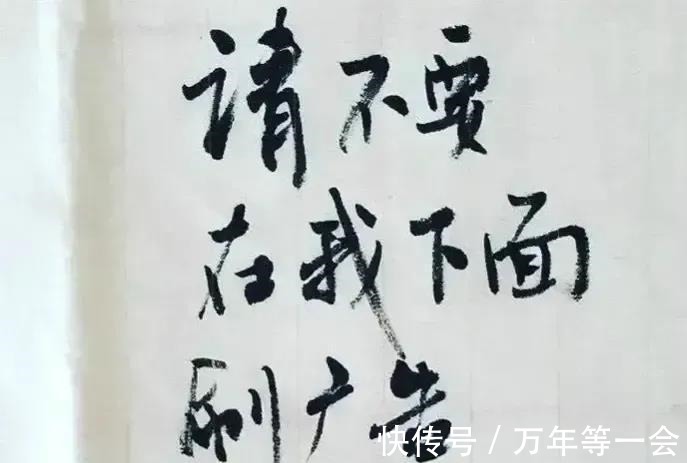 请不要
在我下面
刷广告
快传号 / 万年等一会